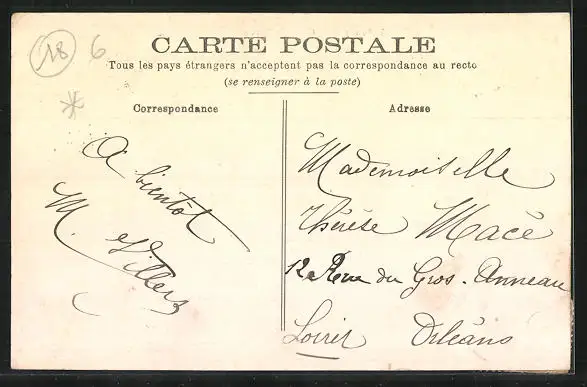 18 6
CARTE POSTALE
Tous les pays étrangers n'acceptent pas la correspondance au recto
(se renseigner à la poste)
Correspondance
A bientôt
M. Villers
Adresse
Mademoiselle
Thérèse Macé
12 Rue du Gros-Anneau
Loiret Orléans